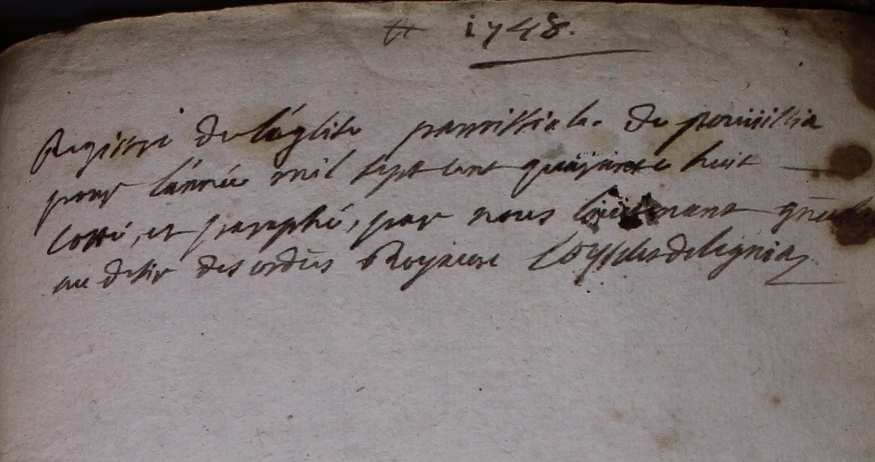 1748.
Registre de l'église parroissiale de pouuillia
pour l'année mil sept cent quarante huit
Cotté, et paraphé, par nous Lieutenant gñral
au desir des ordces Royaux